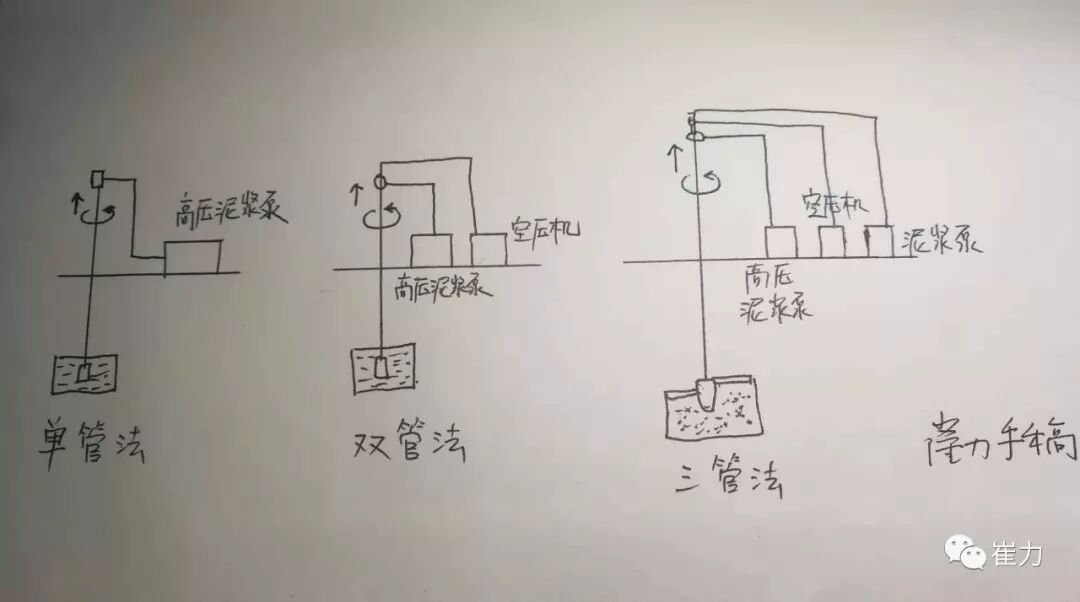 高压泥浆泵
单管法
空压机
高压泥浆泵
双管法
空压机
泥浆泵
高压
泥浆泵
三管法
崔力手稿
崔力